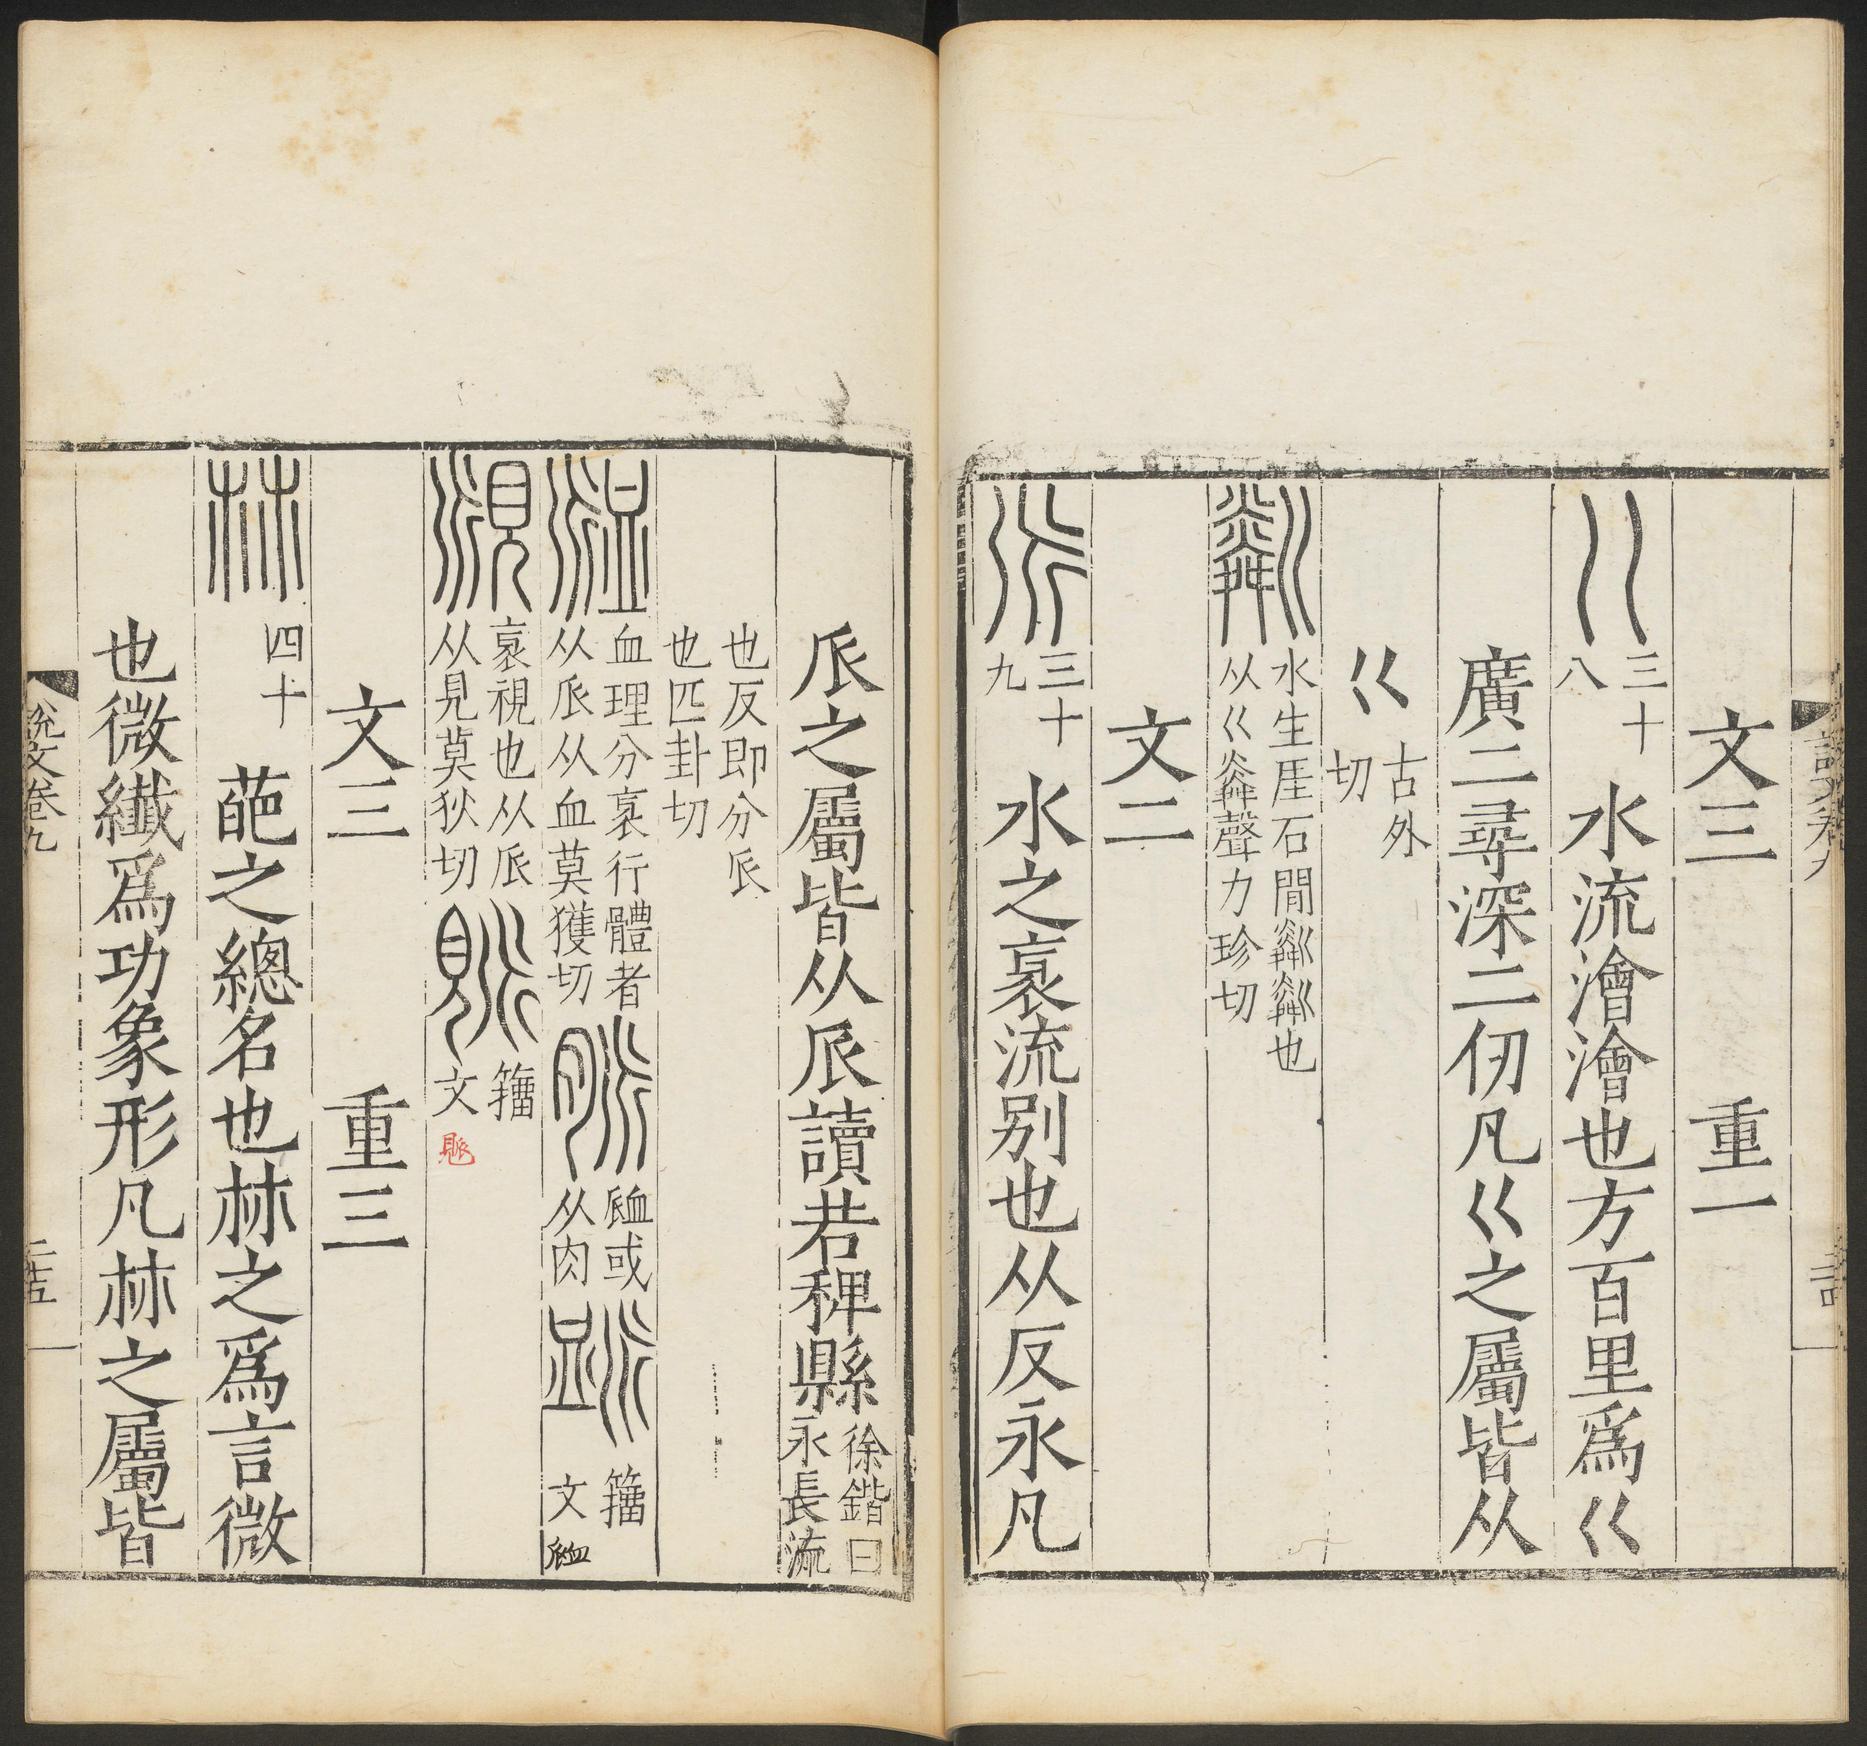 文三 重一
三十八 水流澮澮也方百里爲巜
廣二尋深二仞凡巜之屬皆从
巜 古外切
水生厓石閒粼粼也
从巜粦聲力珍切
文二
三十九 水之衺流别也从反永凡
𠂢之屬皆从𠂢讀若稗縣 徐鍇曰永長流
也反即分𠂢
也匹卦切
血理分衺行體者
从𠂢从血莫獲切
衇或从肉
籒文
衺視也从𠂢
从見莫狄切
籒文
文三 重三
四十 葩之總名也𣏟之爲言微
也微纎爲功象形凡𣏟之屬皆
説文卷九